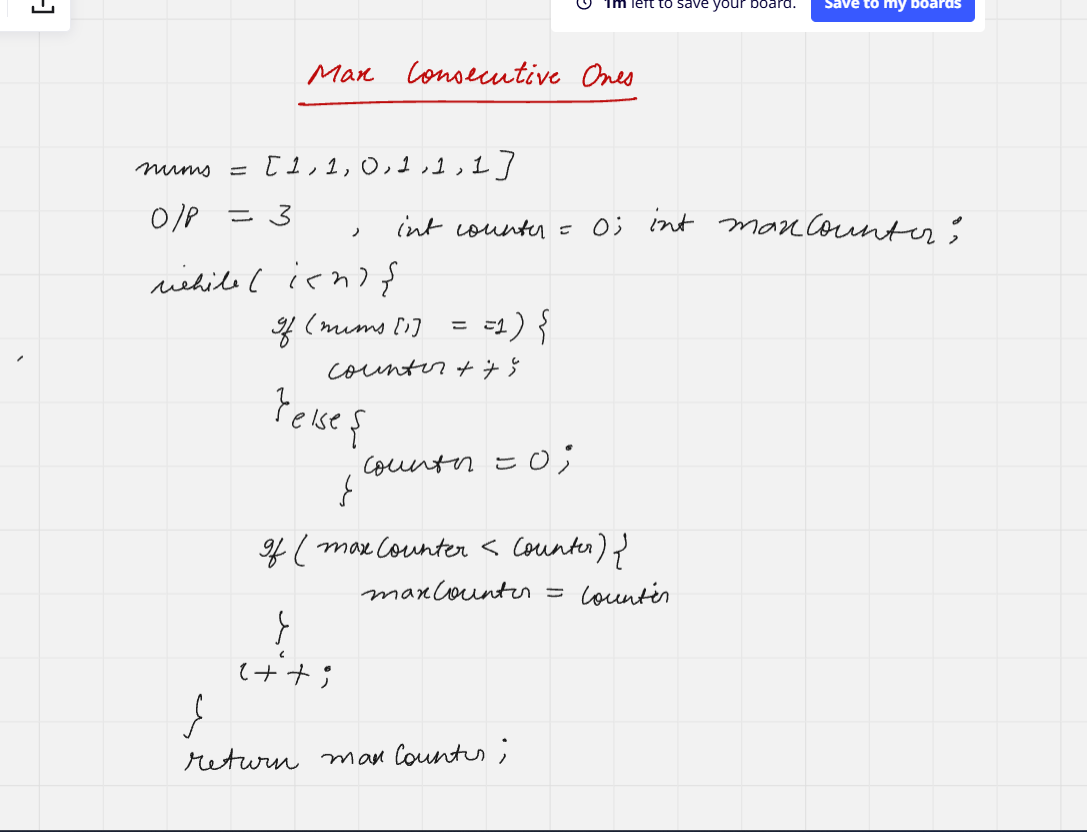 1m left to save your board. Save to my boards
Max Consecutive Ones
nums = [1,1,0,1,1,1]
O/P = 3 , int counter = 0; int maxCounter;
while( i<n) {
if (nums [i] = =1) {
counter + +;
} else {
counter = 0;
}
if ( maxCounter < Counter) {
maxCounter = Counter
}
i++;
}
return maxCounter;